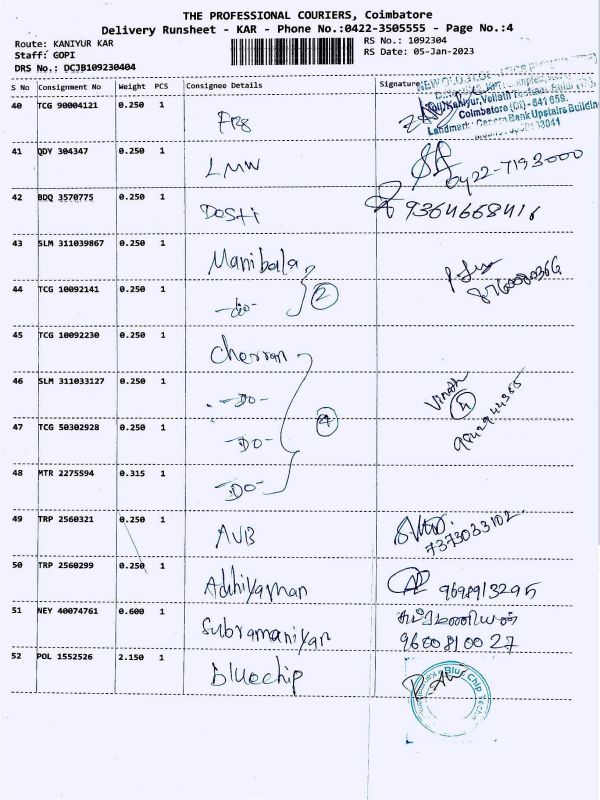 THE PROFESSIONAL COURIERS, Coimbatore
Delivery Runsheet - KAR - Phone No.:0422-3505555 - Page No.:4
Route: KANIYUR KAR RS No.: 1092304
Staff: GOPI RS Date: 05-Jan-2023
DRS No.: DCJB109230404
S No Consignment No Weight PCS Consignee Details Signature
40 TCG 90004121 0.250 1
Kaniyur,
Coimbatore (Dt) - 641 659.
Landmark: Canara Bank Upstairs Building
41 QDY 304347 0.250 1 LMW 0422-7193000
42 BDQ 3570775 0.250 1 Dosti 9364668416
43 SLM 311039867 0.250 1 Manibala
44 TCG 10092141 0.250 1 -do- 2
45 TCG 10092230 0.250 1 Cherran
46 SLM 311033127 0.250 1 -Do- Vinoth
47 TCG 50302928 0.250 1 -Do- 4 4 9842944355
48 MTR 2275594 0.315 1 -Do-
49 TRP 2560321 0.250 1 AVB 7373033102
50 TRP 2560299 0.250 1 Adhiyaman 9698913295
51 NEY 40074761 0.600 1 Subramaniyan சுப்ரமணியன்
9600810027
52 POL 1552526 2.150 1 bluechip
Blue Chip